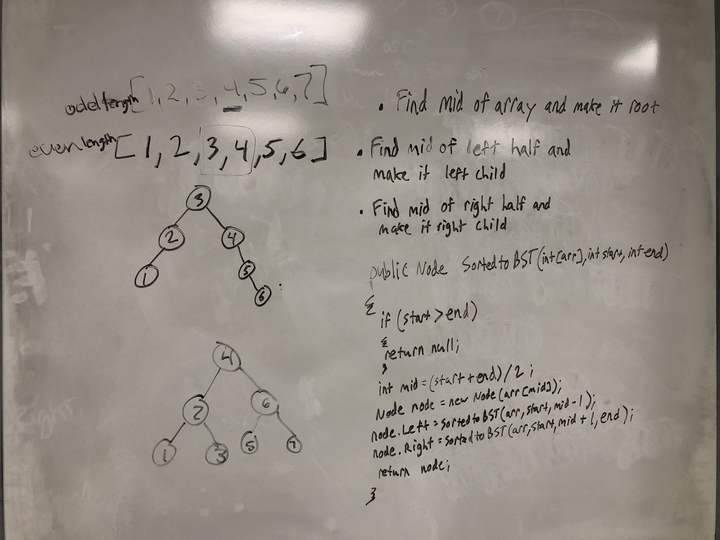 odd length [1, 2, 3, 4, 5, 6, 7]
even length [1, 2, 3, 4, 5, 6]
3
2 4
1 5
6
4
2 6
1 3 5 7
• Find mid of array and make it root
• Find mid of left half and
make it left child
• Find mid of right half and
make it right child
public Node SortedtoBST(int[arr], int start, int end)
{
if (start > end)
{
return null;
}
int mid = (start + end) / 2;
Node node = new Node(arr[mid]);
node.Left = sortedtoBST(arr, start, mid - 1);
node.Right = sortedtoBST(arr, start, mid + 1, end);
return node;
}